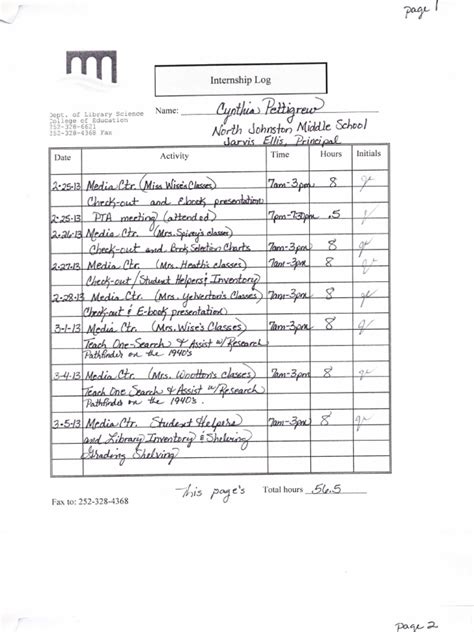 page 1
Internship Log
Dept. of Library Science
College of Education
252-328-6621
252-328-4368 Fax
Name: Cynthia Pettigrew
North Johnston Middle School
Jarvis Ellis, Principal
Date Activity Time Hours Initials
2-25-13 Media Ctr. (Miss Wise's Classes) 7am-3pm 8
Check-out and Ebook presentation
2-25-13 PTA meeting (attended) 7pm-7:30pm .5
2-26-13 Media Ctr. (Mrs. Spivey's classes) 7am-3pm 8
Check-out and Book Selection Charts
2-27-13 Media Ctr. (Mrs. Heath's classes) 7am-3pm 8
Check-out/Student Helpers & Inventory
2-28-13 Media Ctr. (Mrs. Yelverton's Classes) 7am-3pm 8
Check-out & E-book presentation
3-1-13 Media Ctr. (Mrs. Wise's Classes) 7am-3pm 8
Teach One-Search & Assist w/Research
Pathfinder on the 1940's
3-4-13 Media Ctr. (Mrs. Wootton's classes) 7am-3pm 8
Teach One Search & Assist w/Research
Pathfinder on the 1940's.
3-5-13 Media Ctr. Student Helpers 7am-3pm 8
and Library Inventory & Shelving
Grading Shelving
This page's Total hours 56.5
Fax to: 252-328-4368
page 2